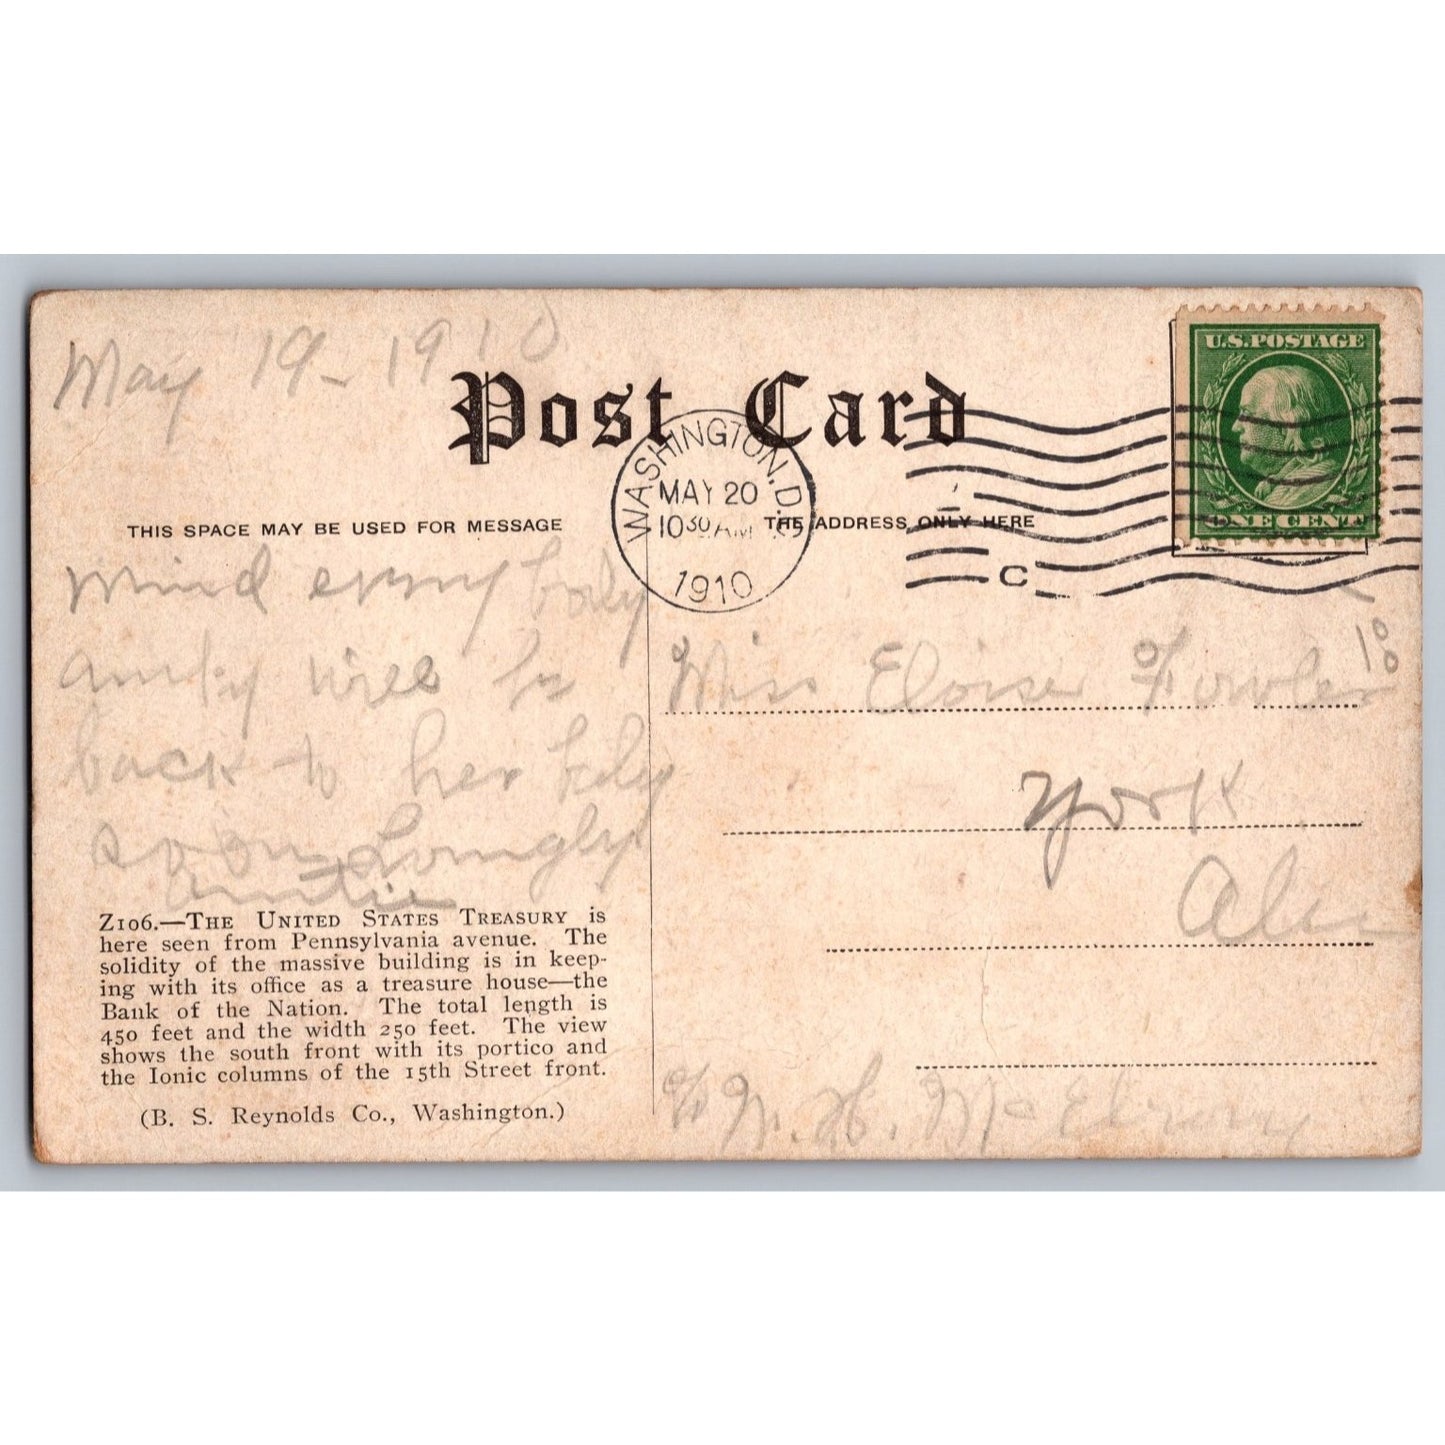 May 19 - 1910
Post Card
WASHINGTON, D.C.
MAY 20
10 30 AM
1910
U.S. POSTAGE
ONE CENT
C
THIS SPACE MAY BE USED FOR MESSAGE
THE ADDRESS ONLY HERE
mind
will
back to her
soon Lovingly
Auntie
Miss Eloise Fowler
York
Ala
c/o W. H. McElroy
Z106.—THE UNITED STATES TREASURY is
here seen from Pennsylvania avenue. The
solidity of the massive building is in keep-
ing with its office as a treasure house—the
Bank of the Nation. The total length is
450 feet and the width 250 feet. The view
shows the south front with its portico and
the Ionic columns of the 15th Street front.
(B. S. Reynolds Co., Washington.)